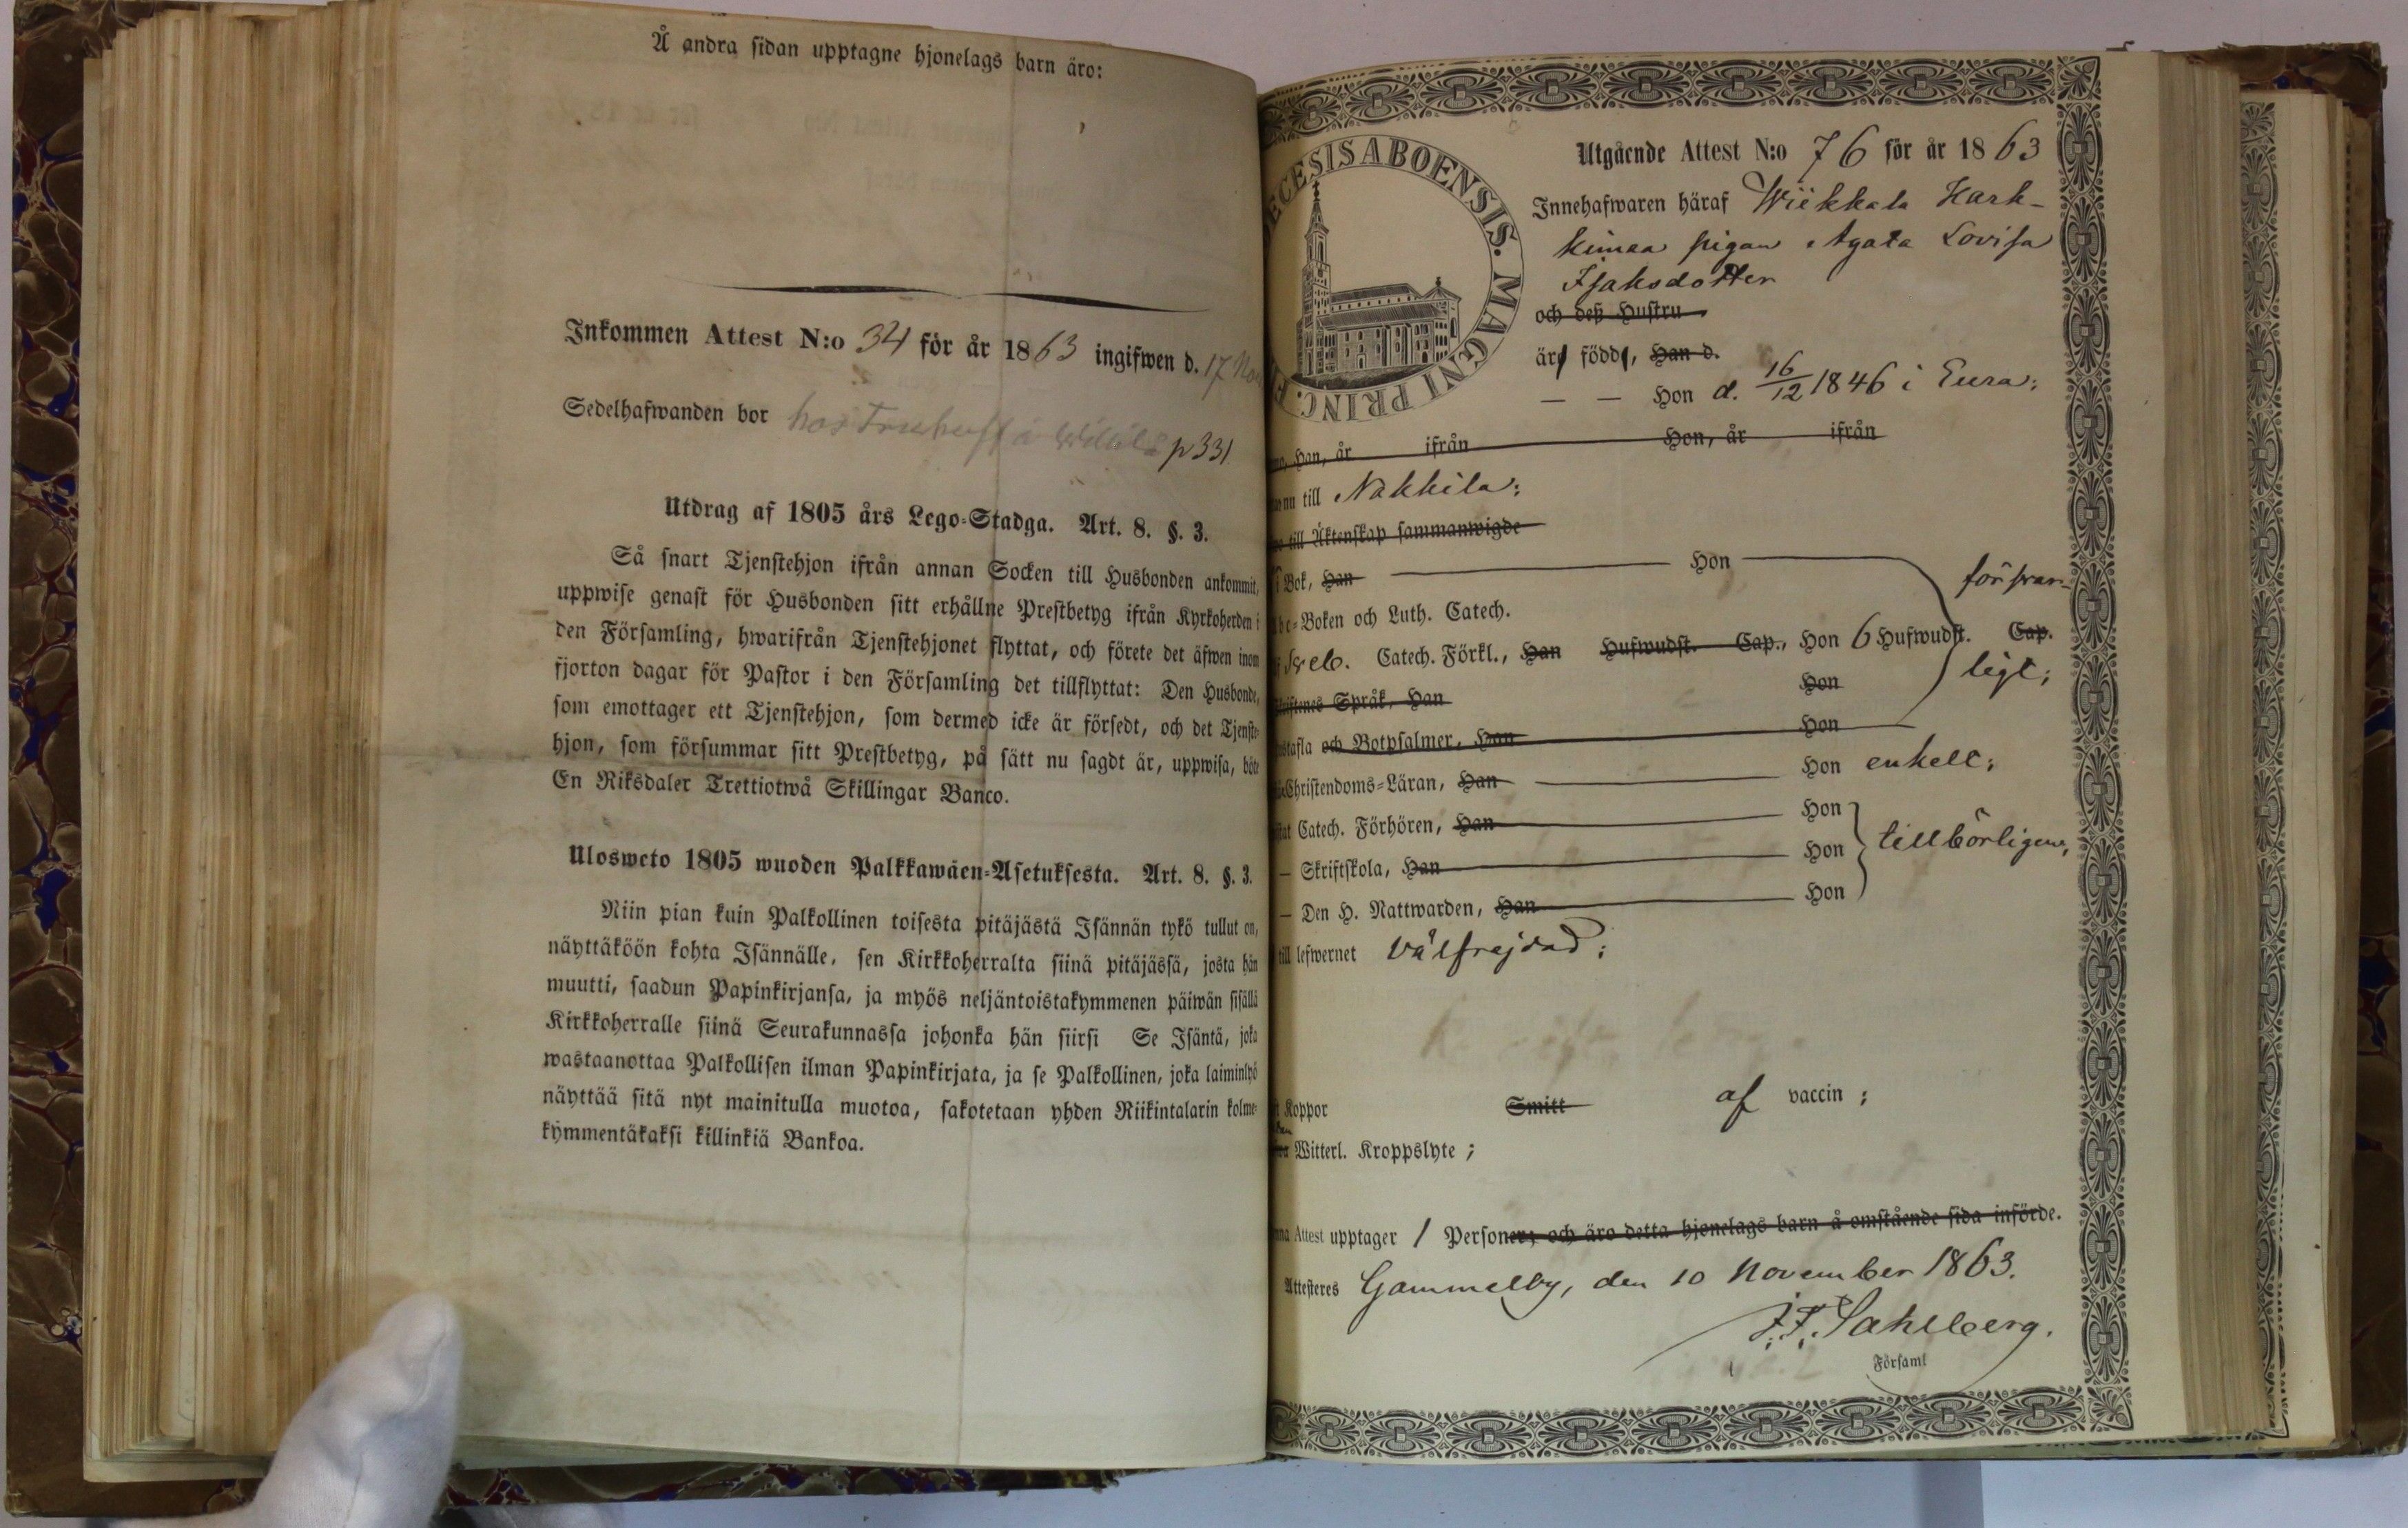 Å andra sidan upptagne hjonelags barn äro:
Inkommen Attest N:o 34 för år 1863 ingifwen d. 17 Nov
Sedelhafwanden bor hos p 331
Utdrag af 1805 års Lego-Stadga. Art. 8. §. 3.
Så snart Tjenstehjon ifrån annan Socken till Husbonden ankommit,
uppwise genast för Husbonden sitt erhållne Prestbetyg ifrån Kyrkoherden i
den Församling, hwarifrån Tjenstehjonet flyttat, och förete det äfwen inom
fjorton dagar för Pastor i den Församling det tillflyttat: Den Husbonde,
som emottager ett Tjenstehjon, som dermed icke är försedt, och det Tjenste-
hjon, som försummar sitt Prestbetyg, på sätt nu sagdt är, uppwisa, böte
En Riksdaler Trettiotwå Skillingar Banco.
Ulosweto 1805 wuoden Palkkawäen-Asetuksesta. Art. 8. §. 3.
Niin pian kuin Palkollinen toisesta pitäjästä Isännän tykö tullut on,
näyttäköön kohta Isännälle, sen Kirkkoherralta siinä pitäjässä, josta hän
muutti, saadun Papinkirjansa, ja myös neljäntoistakymmenen päiwän sisällä
Kirkkoherralle siinä Seurakunnassa johonka hän siirsi Se Isäntä, joka
wastaanottaa Palkollisen ilman Papinkirjata, ja se Palkollinen, joka laiminlyö
näyttää sitä nyt mainitulla muotoa, sakotetaan yhden Riikintalarin kolme-
kymmentäkaksi killinkiä Bankoa.
ECESIS ABOENSIS. MAGNI PRINC. F
Utgående Attest N:o 76 för år 1863
Innehafwaren häraf Wiikkala Kark-
kimaa pigan Agata Lovisa
Isaksdotter
och deß Hustru
är född, Han d.
— — Hon d. 16/12 1846 i Eura;
Han, år ifrån Hon, år ifrån
nu till Nakkila;
till Äktenskap sammanwigde
i Bok, Han Hon försvar-
Boken och Luth. Catech.
Catech. Förkl., Han Hufwudst. Cap., Hon 6 Hufwudst. Cap.
ligt;
Språk, Han Hon
tafla och Botpsalmer, Han Hon
Christendoms-Läran, Han Hon enkelt;
Catech. Förhören, Han Hon
— Skriftskola, Han Hon tillbörligen;
— Den H. Nattwarden, Han Hon
till lefwernet välfrejdad;
Koppor Smitt af vaccin;
Witterl. Kroppslyte;
Attest upptager 1 Personer; och äro detta hjonelags barn å omstående sida införde.
Attesteres Gammelby, den 10 November 1863.
J. F. Sahlberg.
Församl